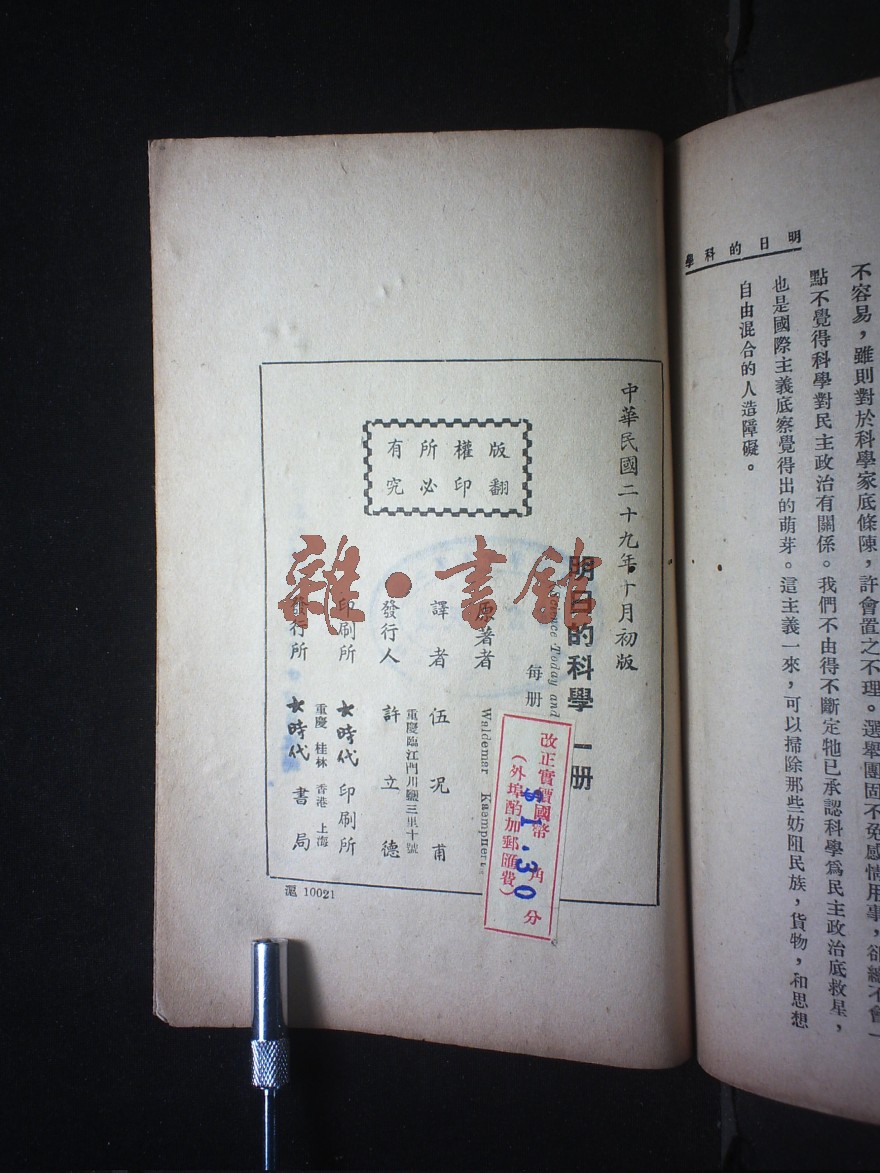 明日的科學
不容易，雖則對於科學家底條陳，許會置之不理。選舉團固不免感情用事，卻總不會一
點不覺得科學對民主政治有關係。我們不由得不斷定牠已承認科學爲民主政治底救星，
也是國際主義底察覺得出的萌芽。這主義一來，可以掃除那些妨阻民族，貨物，和思想
自由混合的人造障礙。
中華民國二十九年十月初版
明日的科學 一册
Science Today and
每册
改正實價國幣 角 分
（外埠酌加郵匯費）
$1.30
原著者 Waldemar Kaempffert
譯者 伍況甫
重慶臨江門川鹽三里十號
發行人 許立德
印刷所 大時代印刷所
重慶 桂林 香港 上海
發行所 大時代書局
版權所有
翻印必究
滬 10021
雜·書館